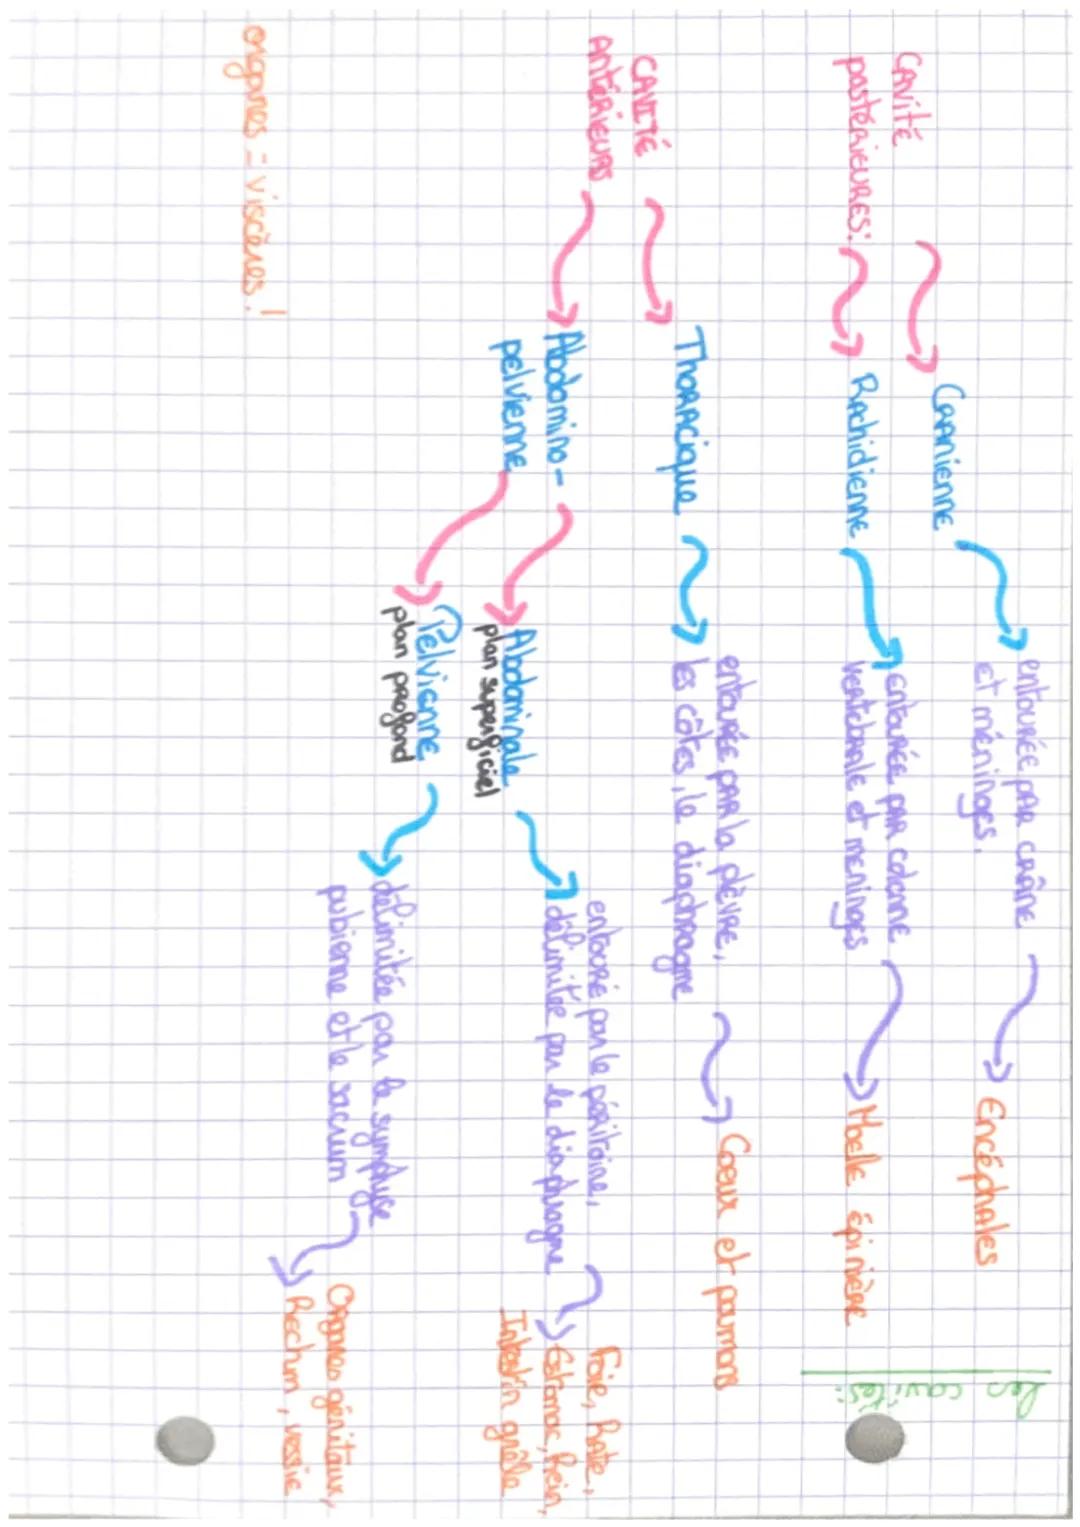 Les cavités:
Cavité
postérieures:
Crânienne
entourée par crâne
et méninges.
Encéphales
Rachidienne
entourée par colonne
vertébrale et méninges
Moelle épinière
CAVITÉ
ANTÉRIEURS
Thoracique
entourée par la plèvre,
les côtes, le diaphragme
Coeur et poumons
Abdomino-
pelvienne
Abdominale
plan superficiel
entouré par le péritoine,
délimitée par le diaphragme
Foie, Rate,
Estomac, Rein,
Intestin grêle
Pelvienne
plan profond
délimitée par la symphyse
pubienne et le sacrum
Organes génitaux,
Rectum, vessie
organes = viscères !